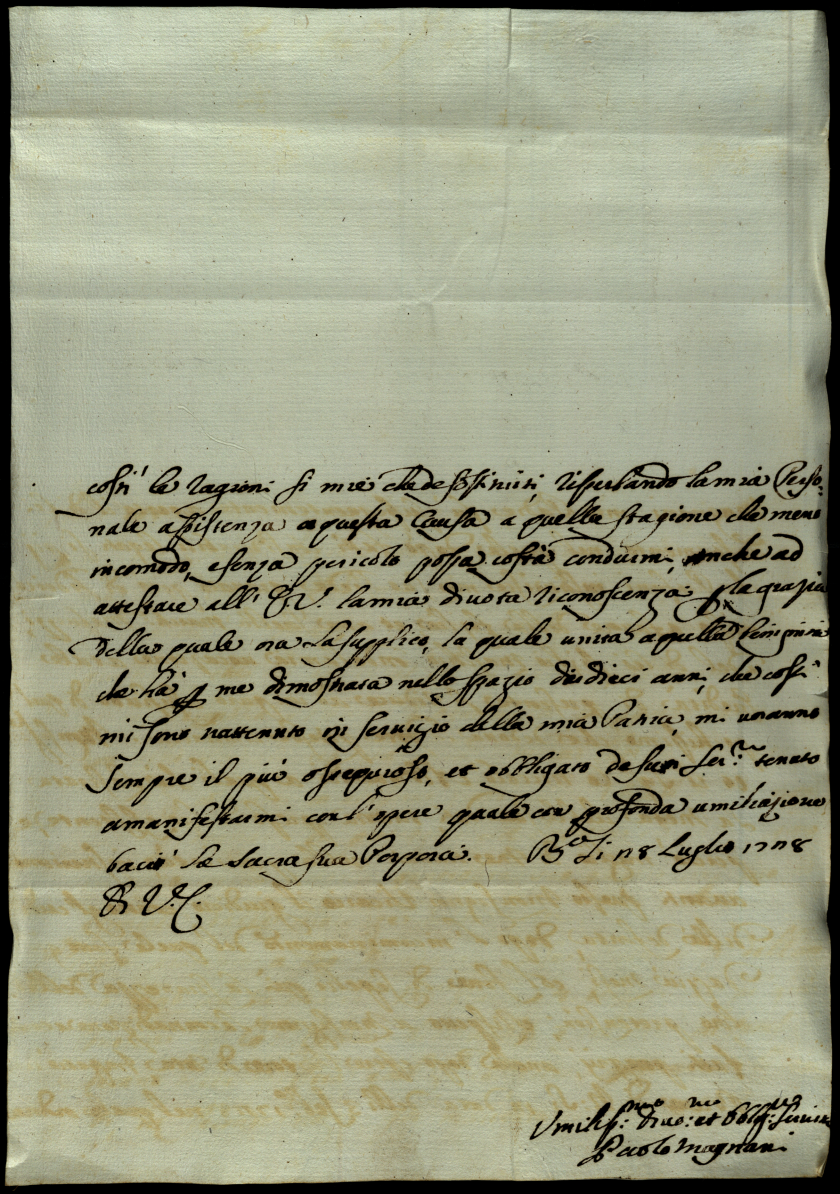 costì le ragioni si mie che de Sig.ri miei, risperbando la mia Perso=
nale assistenza a questa Causa a quella stagione che meno
incomodo, e senza pericolo possa costà condurmi, anche ad
attestare all' E. V. la mia divota riconoscenza p la grazia
della quale ora la supplico, la quale unita a quella benignità
che hà p me dimostrata nello spazio di dieci anni, che costì
mi sono trattenuto in servigio della mia Patria, mi voranno
sempre il più ossequioso, et obbligato de suoi Ser.ri tenuto
a manifestarmi con l' opere quale con profonda umiliazione
bacio la sacra sua Porpora. B.a li 18 Luglio 1708
D. V. E.
Umiliss.mo divo.mo et Obblig.mo Servit.
Paolo Magnani